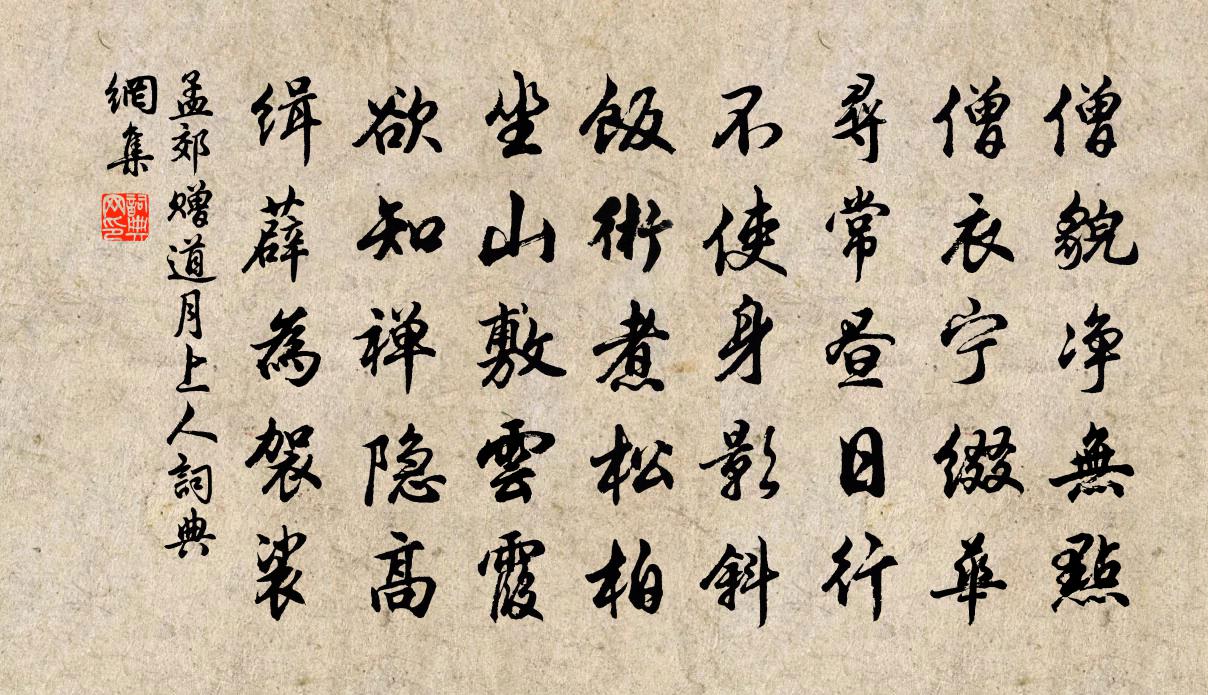 僧貌净無點
僧衣宁缀華
尋常昼日行
不使身影斜
飯術煮松柏
坐山敷雲霞
欲知禅隐高
缉薜為袈裟
孟郊赠道月上人詞典
網集
詞典
网印